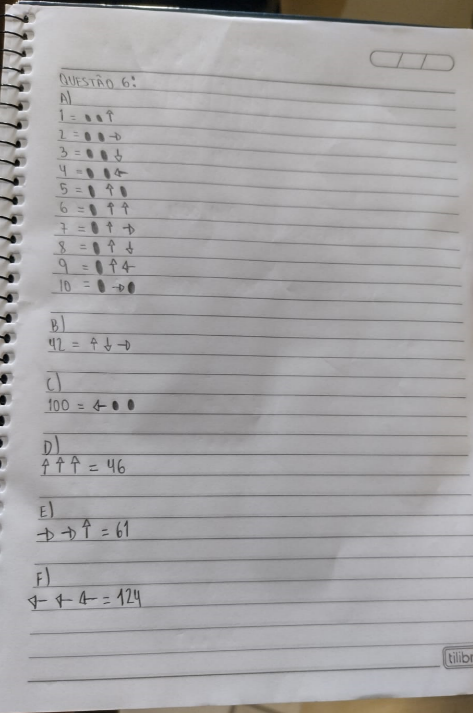 QUESTÃO 6:
A)
1 = ●●↑
2 = ●●→
3 = ●●↓
4 = ●●←
5 = ●↑●
6 = ●↑↑
7 = ●↑→
8 = ●↑↓
9 = ●↑←
10 = ●→●
B)
42 = ↑↓→
C)
100 = ←●●
D)
↑↑↑ = 46
E)
→→↑ = 61
F)
←←← = 124